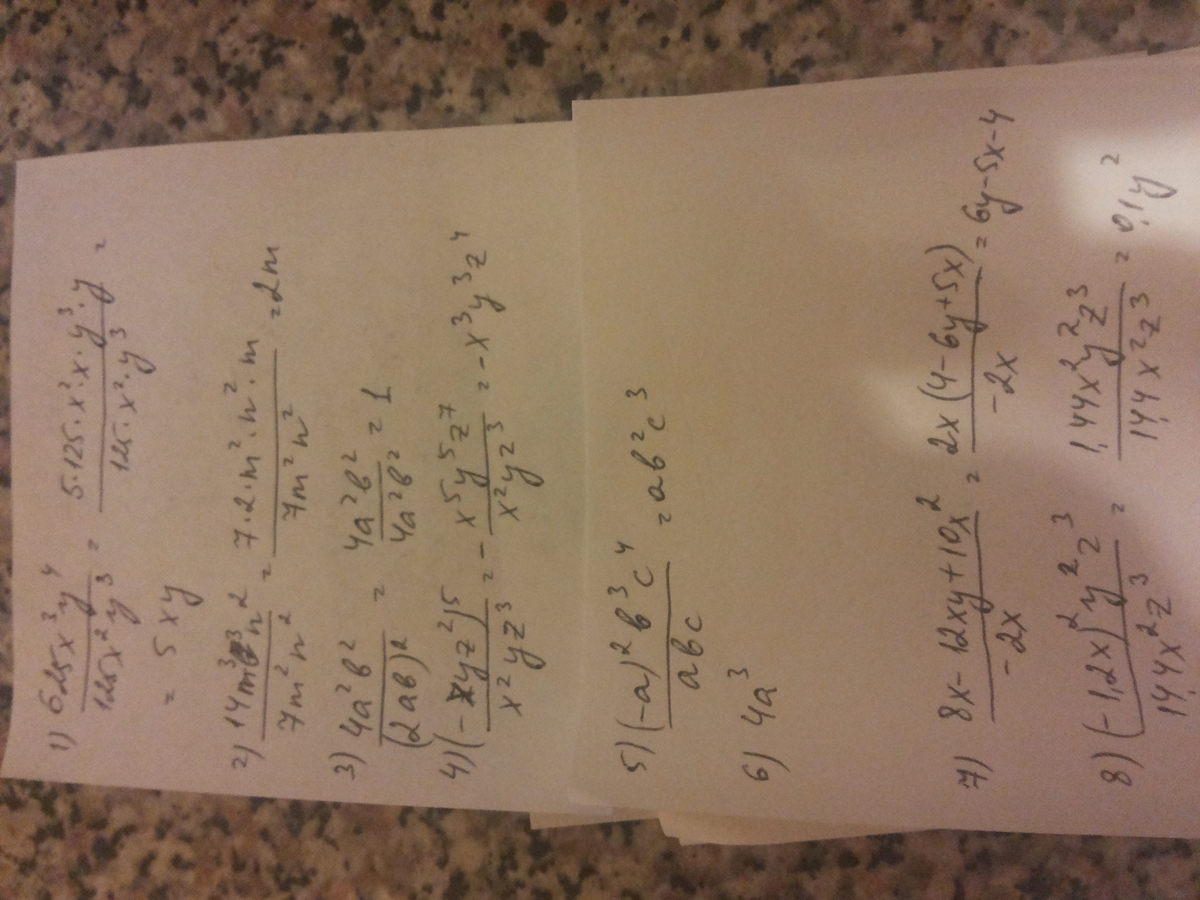 1) 625x³y⁴/125x²y³ = 5·125·x²·x·y³·y/125·x²·y³ =
= 5xy
2) 14m³n²/7m²n² = 7·2·m²·n²·m/7m²n² = 2m
3) 4a²b²/(2ab)² = 4a²b²/4a²b² = 1
4) (-xyz²)⁵/x²yz³ = - x⁵y⁵z⁷/x²yz³ = -x³y³z⁴
5) (-a)²b³c⁴/abc = ab²c³
6) 4a³
7) 8x-12xy+10x²/-2x = 2x(4-6y+5x)/-2x = 6y-5x-4
8) (-1,2x)²y²z³/14,4x²z³ = 1,44x²y²z³/14,4x²z³ = 0,1y²